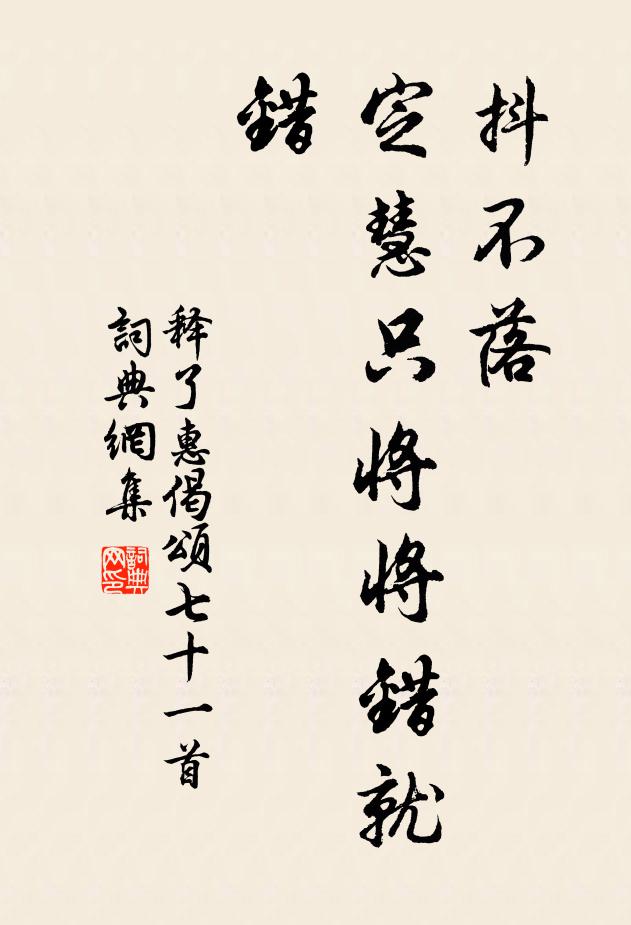 抖不落
定慧只將將錯就
錯
释了惠偈頌七十一首
詞典網集
詞典网印